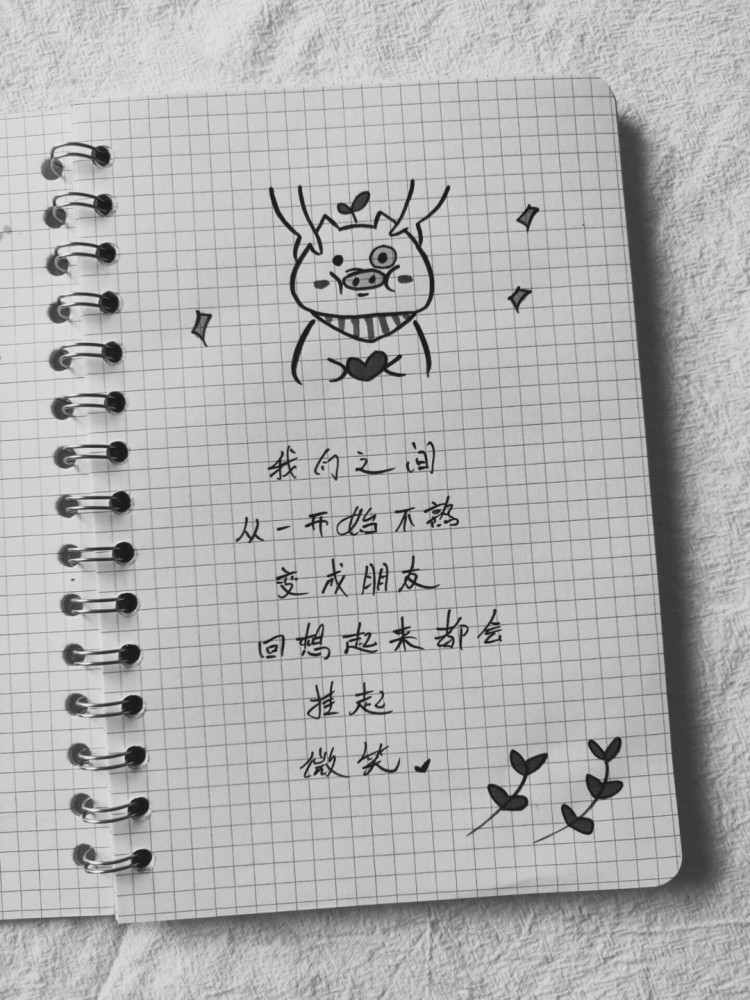 我们之间
从一开始不熟
变成朋友
回想起来都会
挂起
微笑